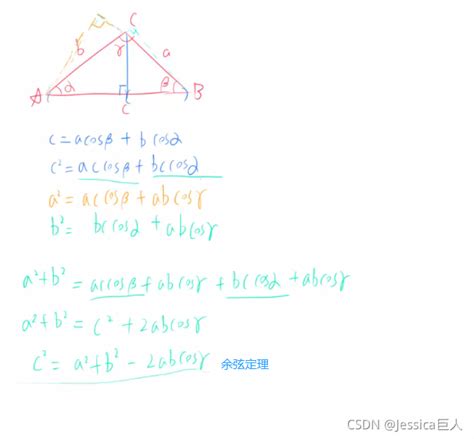 C
b
γ
a
A
α
β
B
C
c = acosβ + bcosα
c² = accosβ + bccosα
a² = accosβ + abcosγ
b² = bccosα + abcosγ
a²+b² = accosβ + abcosγ + bccosα + abcosγ
a²+b² = c² + 2abcosγ
c² = a²+b² - 2abcosγ 余弦定理
CSDN @Jessica巨人